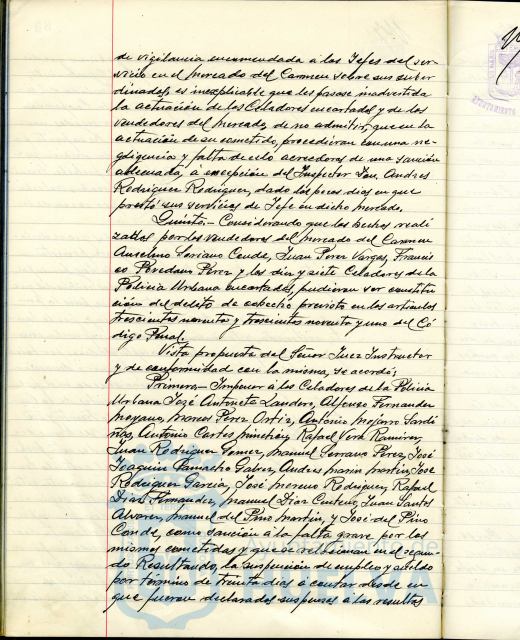 de vigilancia encomendada a los Jefes del ser-
vicio en el Mercado del Carmen sobre sus subor-
dinados, es inexplicable que les pasase inadvertida
la actuación de los Celadores encartados y de los
vendedores del Mercado, de no admitir, que en la
actuación de su cometido, procedieran con una ne-
gligencia y falta de celo acreedoras de una sanción
adecuada, a excepción del Inspector Don Andres
Rodriguez Rodriguez, dado los pocos dias en que
prestó sus servicios de Jefe en dicho Mercado.
Quinto.- Considerando que los hechos reali-
zados por los vendedores del Mercado del Carmen
Anselmo Soriano Conde, Juan Perez Vargas, Francis-
co Perez y los diez y siete Celadores de la
Policia Urbana encartados, pudieran ser constitu-
ción del delito de cohecho previsto en los articulos
trescientos noventa y trescientos noventa y uno del Có-
digo Penal.
Vista propuesta del Señor Juez Instructor
y de conformidad con la misma, se acordó:
Primero.- Imponer a los Celadores de la Policia
Urbana José Landero, Alfonso Fernandez
Moyano, Manuel Perez Ortiz, Antonio Sardi-
ñas, Antonio Cortes, Rafael Vera Ramirez,
Juan Rodriguez Gomez, Manuel Serrano Perez, José
Joaquin Camacho, Andres Marin Martin, José
Rodriguez Garcia, José Moreno Rodriguez, Rafael
Diaz Fernandez, Manuel Diaz, Juan Santos
Alvarez, Manuel del Pino Martin, y José del Pino
Conde, como sanción a la falta grave por los
mismos cometidas y que se relacionan en el segun-
do Resultando, la suspensión de empleo y sueldo
por término de treinta dias a contar desde en
que fueron declarados suspensos a las resultas
AYUNTAMIENTO